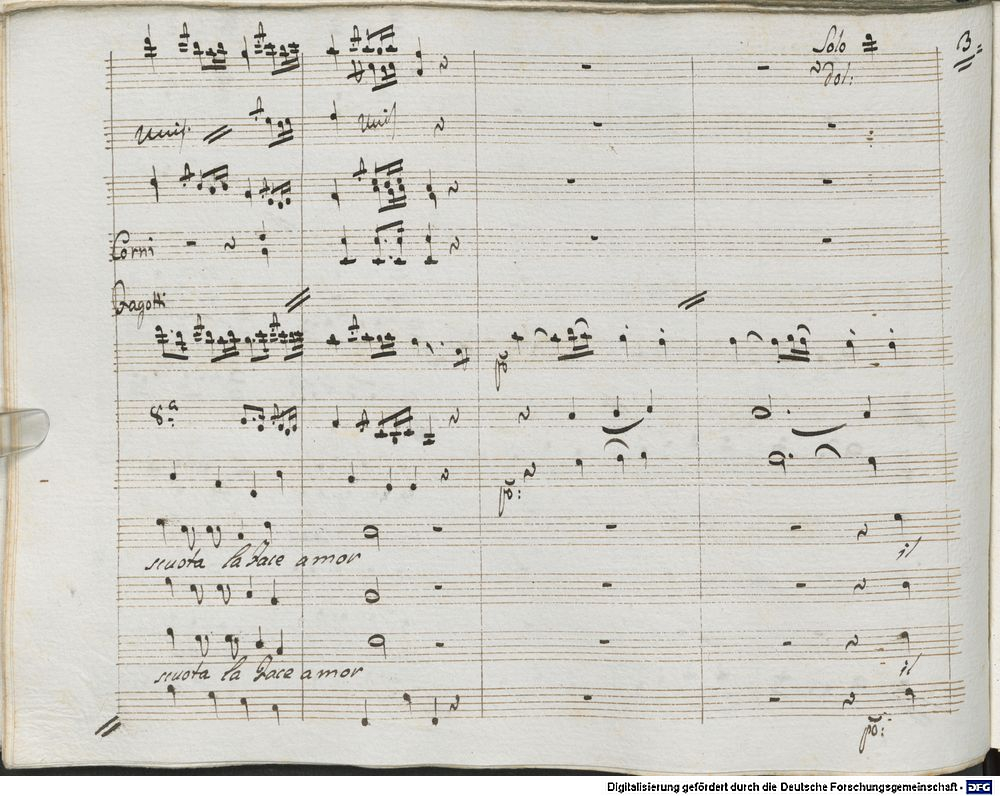 Solo
3
dol:
Unis.
Unis
Corni
Fagotti
8.ª
po:
po:
scuota la face amor
il
scuota la face amor
il
po:
Digitalisierung gefördert durch die Deutsche Forschungsgemeinschaft - DFG